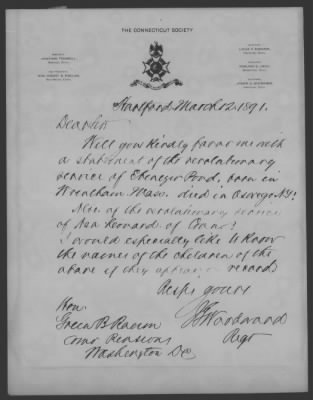 THE CONNECTICUT SOCIETY
PRESIDENT
JONATHAN TRUMBULL
Hartford March 12. 1891.
Dear Sir
Will you kindly favor me with
a statement of the revolutionary
service of Ebenezer Pond, born in
Wrentham Mass. died in Oswego N.Y.?
Also of the revolutionary service
of Asa Leonard of Conn?
I would especially like to know
the names of the children of the
above if they appear records
Respy yours
Hon
J G Woodward
Green B Raum
Regt
Comr Pensions
Washington DC